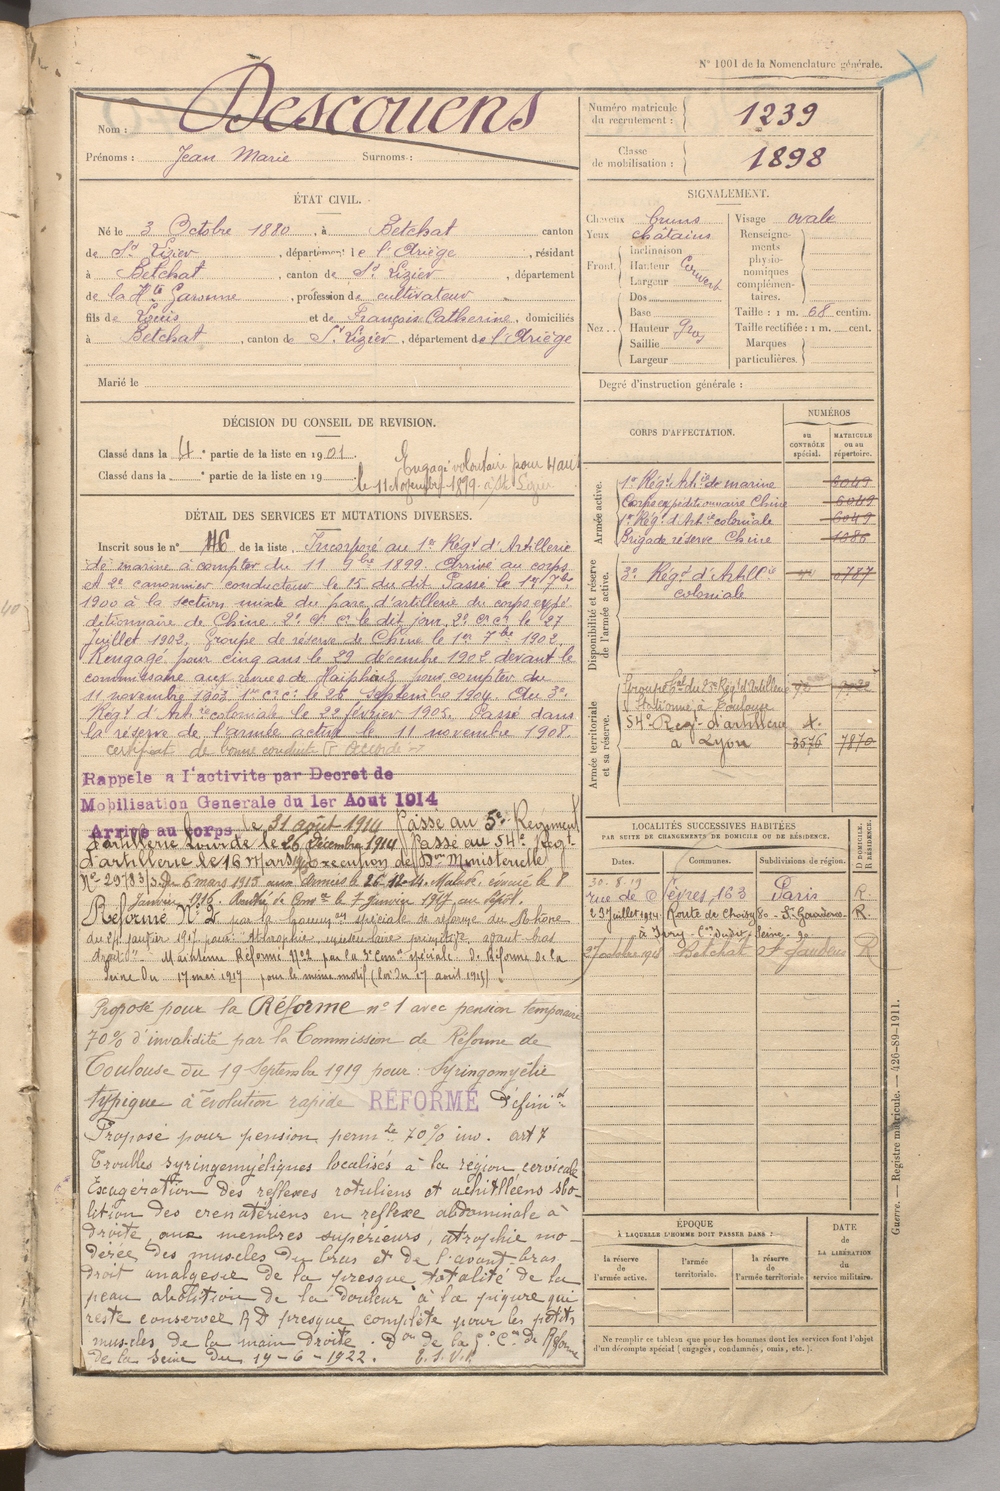 N° 1001 de la Nomenclature générale.
Nom : Descouens
Prénoms : Jean Marie Surnoms :
Numéro matricule du recrutement : 1239
Classe de mobilisation : 1898
ÉTAT CIVIL.
Né le 3 Octobre 1880, à Betchat canton
de St Lizier, département de l'Ariège, résidant
à Betchat, canton de St Lizier, département
de la Hte Garonne, profession de cultivateur
fils de Louis et de François Catherine, domiciliés
à Betchat, canton de St Lizier, département de l'Ariège
Marié le
SIGNALEMENT.
Cheveux bruns
Yeux châtains
Front. Inclinaison
Hauteur Couvert
Largeur
Nez.. Dos
Base
Hauteur Gros
Saillie
Largeur
Visage ovale
Renseignements physionomiques complémentaires.
Taille : 1 m. 68 centim.
Taille rectifiée : 1 m. cent.
Marques particulières.
Degré d'instruction générale :
DÉCISION DU CONSEIL DE REVISION.
Classé dans la 4e partie de la liste en 1901.
Classé dans la e partie de la liste en 19
Engagé volontaire pour 4 ans
le 11 Novembre 1899. à St
DÉTAIL DES SERVICES ET MUTATIONS DIVERSES.
Inscrit sous le n° 46 de la liste. Incorporé au 1er Régt d'Artillerie
de marine à compter du 11 9bre 1899. Arrivé au corps
et 2e canonnier conducteur le 15 du dit. Passé le 1er 7bre
1900 à la section mixte du parc d'artillerie du corps expé
ditionnaire de Chine. 2e cr cr le dit jour, 2e cr cr le 27
Juillet 1902. Groupe de réserve de Chine le 1er 7bre 1902.
Rengagé pour cinq ans le 29 décembre 1902 devant le
commissaire aux revues de Haïphong pour compter du
11 novembre 1903. 1er cr cr le 26 Septembre 1904. Au 3e
Régt d'Artie coloniale le 22 février 1905. Passé dans
la réserve de l'armée active le 11 novembre 1908.
certificat de bonne conduite accordé
Rappele a l'activite par Decret de
Mobilisation Generale du 1er Aout 1914
Arrive au corps le 31 août 1914 Passé au 5e Régiment
d'artillerie Lourde le 26 Décembre 1914 Passé au 54e Régt
d'artillerie le 16 Mars Exécution de Don Ministérielle
N° 29783 du 6 mars 1915 aux armées le 26-12-14. Malade, évacué le 8
Janvier 1916. Rentré de le 7 janvier 1917 au dépôt.
Réformé N° 2 par la spéciale de réforme du Rhône
du 24 janvier 1917 pour : Atrophie musculaire
droit. Maintenu Réformé N°2 par la 3e Comon spéciale de Réforme de la
Seine du 17 mai 1917 pour le même motif (loi du 17 avril 1915)
Proposé pour la Réforme n° 1 avec pension temporaire
70% d'invalidité par la Commission de Réforme de
Toulouse du 19 Septembre 1919 pour : Syringomyélie
typique à évolution rapide RÉFORMÉ Définif
Proposé pour pension permte 70% inv. art 7
Troubles syringomyéliques localisés à la région cervicale
Exagération des réflexes rotuliens et achilléens abo-
lition des crematériens en reflexe abdominale à
droite, aux membres supérieurs, atrophie mo-
dérée des muscles du bras et de l'avant-bras
droit analgesie de la presque totalité de la
peau abolition de la douleur à la piqure qui
reste conservée RD presque complète pour les petits
muscles de la main droite. Don de la Con de Réforme
de la Seine du 19-6-1922.
CORPS D'AFFECTATION.
NUMÉROS
au CONTRÔLE spécial.
MATRICULE ou au répertoire.
Armée active.
1er Régt Artie de marine 6049
Corps expéditionnaire Chine 6049
1er Régt d'Artie coloniale 6049
Brigade réserve Chine 1086
Disponibilité et réserve de l'armée active.
3e Régt d'Artllie coloniale 0787
Armée territoriale et sa réserve.
Groupe du 23e Régt d'Artillerie
Stationné à Toulouse
54e Régt d'artillerie
à Lyon 3576 7870
LOCALITÉS SUCCESSIVES HABITÉES
PAR SUITE DE CHANGEMENTS DE DOMICILE OU DE RÉSIDENCE.
Dates. Communes. Subdivisions de région. D DOMICILE. R RÉSIDENCE.
30.8.19
rue de Sèvres, 163 Paris R.
23 Juillet 1914 Route de Choisy 80 - St Gaudens R.
à Ivry Seine
27 octobre Betchat St Gaudens R
ÉPOQUE
À LAQUELLE L'HOMME DOIT PASSER DANS :
la réserve de l'armée active.
l'armée territoriale.
la réserve de l'armée territoriale
DATE de LA LIBÉRATION du service militaire.
Ne remplir ce tableau que pour les hommes dont les services font l'objet
d'un décompte spécial (engagés, condamnés, omis, etc.).
Guerre. — Registre matricule. — 426-89-1911.